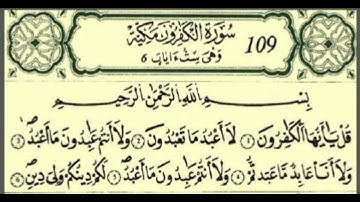 سُورَةُ الْكَٰفِرُونَ مَكِّيَّةٌ
109
وَهِيَ سِتُّ ءَايَاتٍ 6
بِسْمِ اللَّهِ الرَّحْمَٰنِ الرَّحِيمِ
قُلْ يَٰأَيُّهَا الْكَٰفِرُونَ ① لَا أَعْبُدُ مَا تَعْبُدُونَ ② وَلَا أَنتُمْ عَٰبِدُونَ مَا أَعْبُدُ ③
وَلَا أَنَا عَابِدٌ مَّا عَبَدتُّمْ ④ وَلَا أَنتُمْ عَٰبِدُونَ مَا أَعْبُدُ ⑤ لَكُمْ دِينُكُمْ وَلِيَ دِينِ ⑥